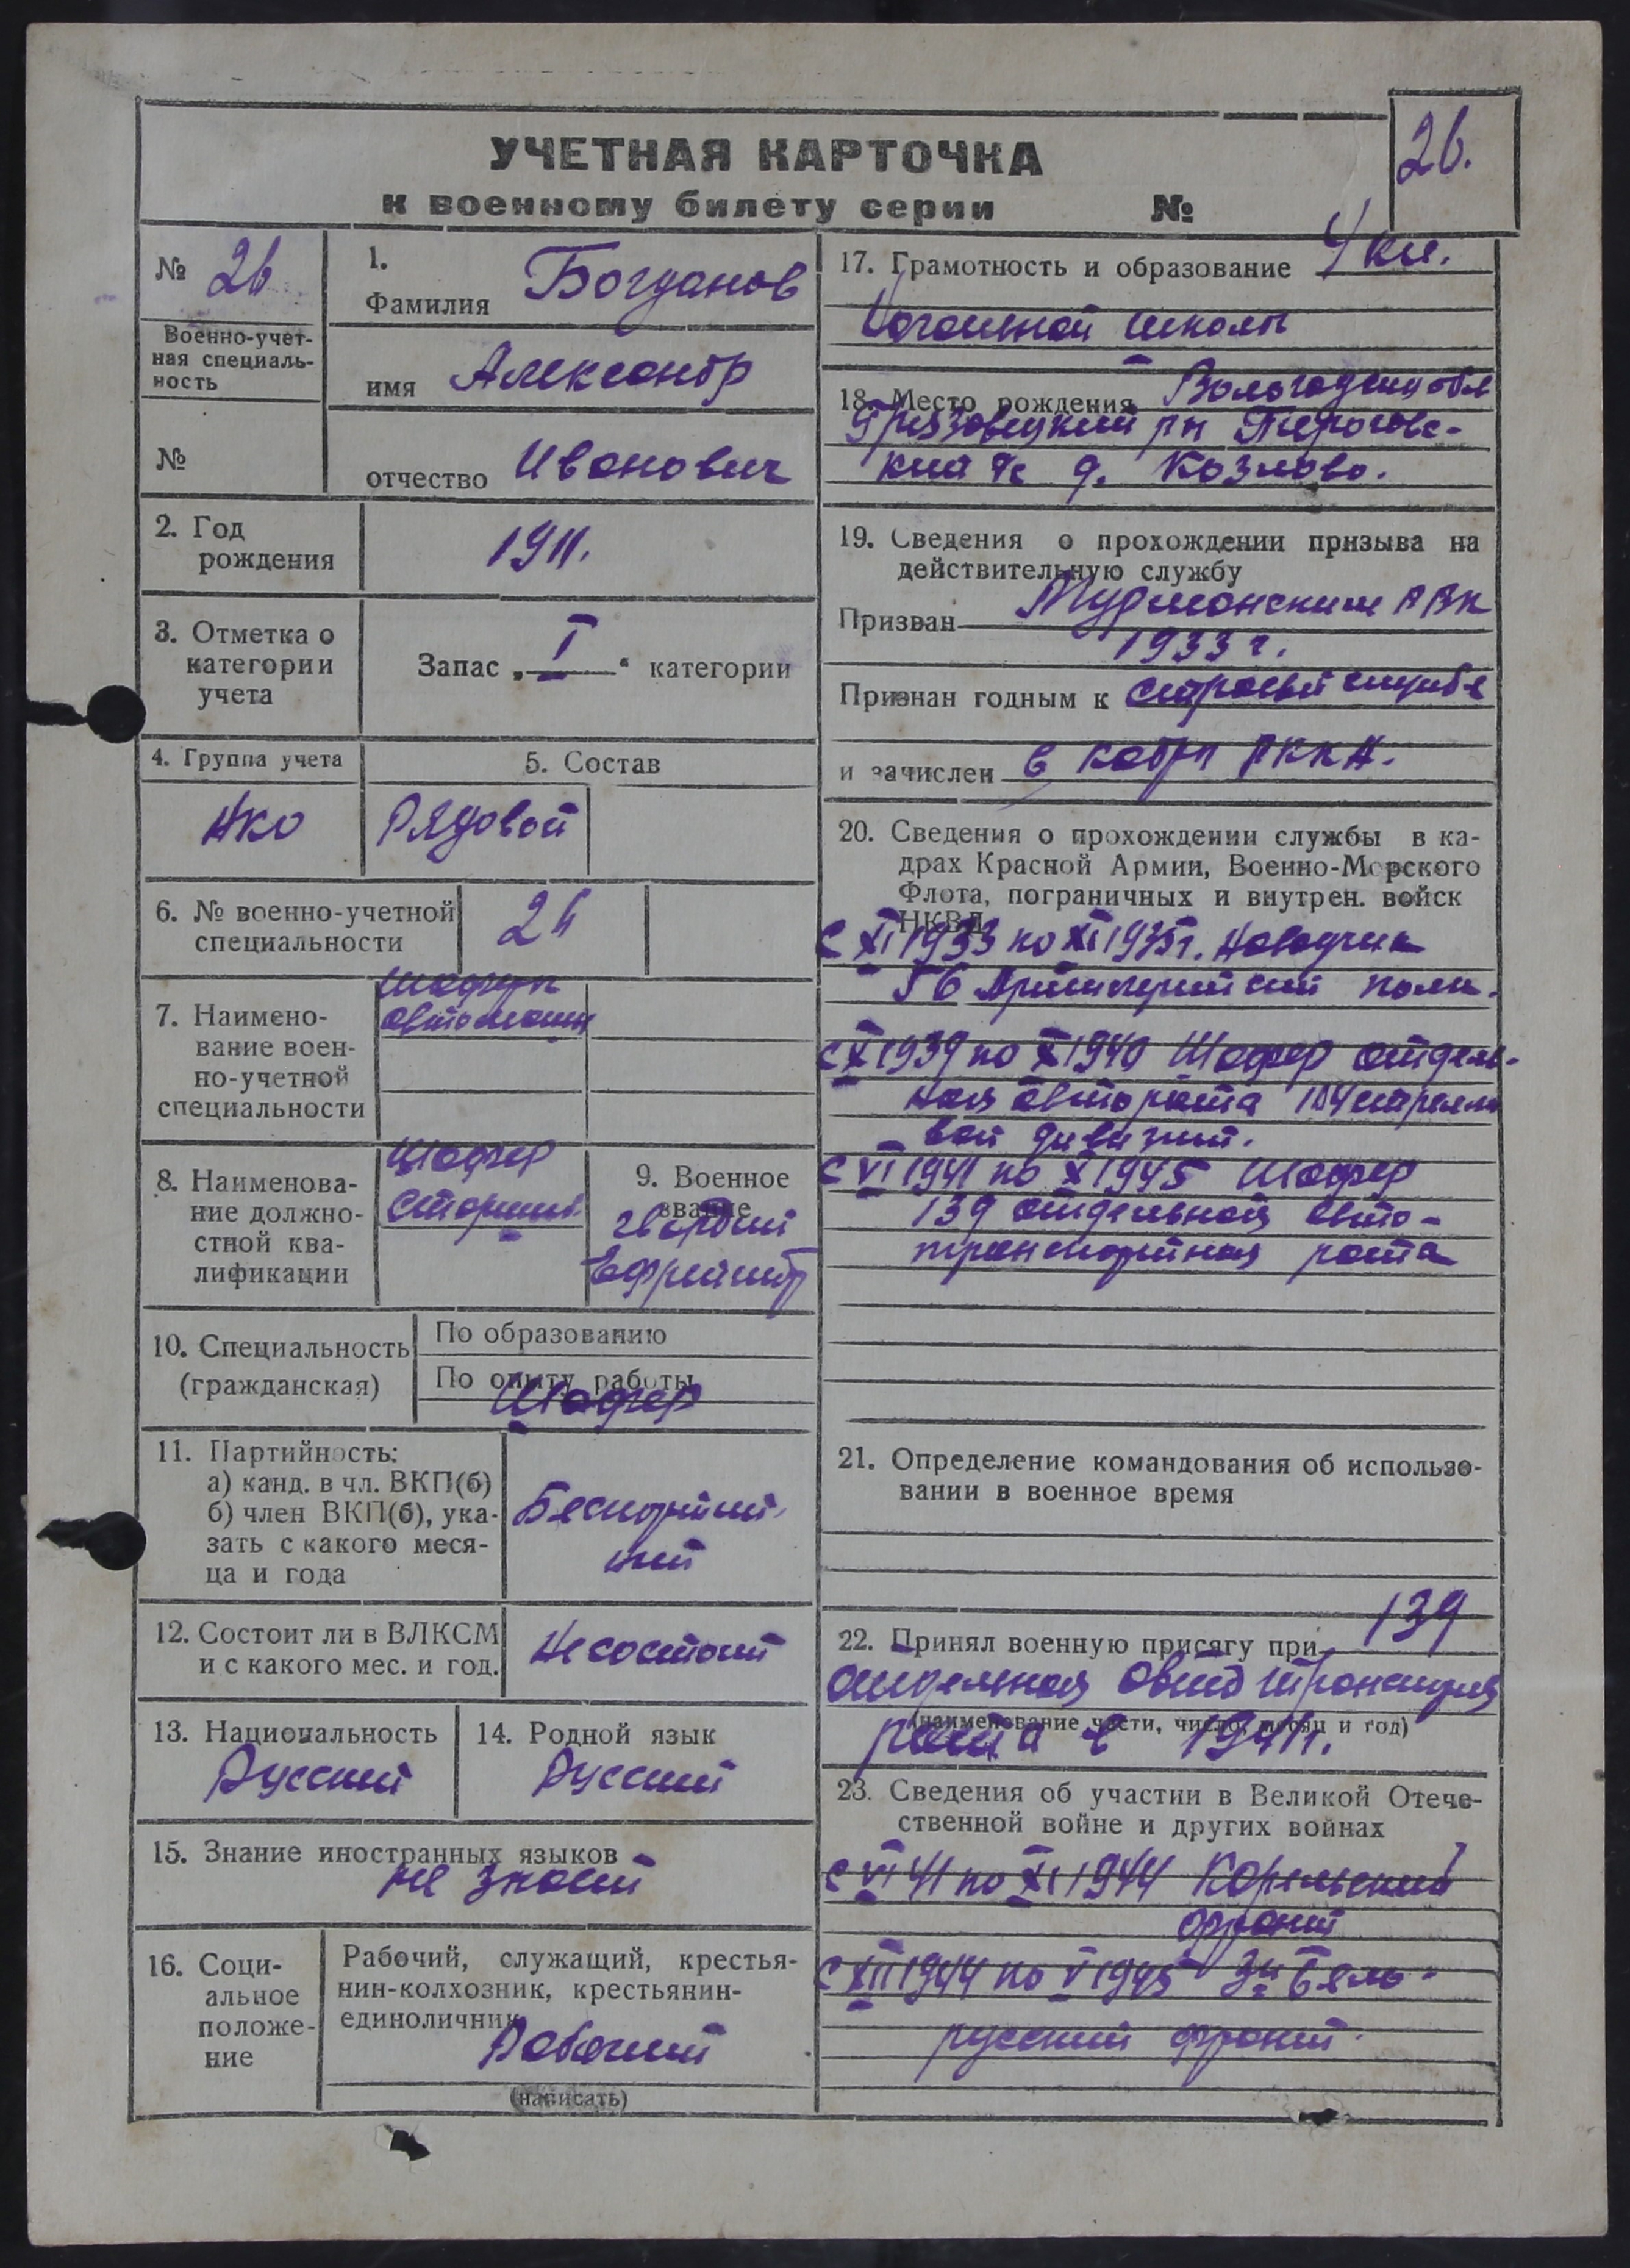 УЧЕТНАЯ КАРТОЧКА
к военному билету серии №
26.
№ 26
Военно-учет-
ная специаль-
ность
№
1.
Фамилия Богданов
имя Александр
отчество Иванович
2. Год
рождения
1911.
3. Отметка о
категории
учета
Запас „I“ категории
4. Группа учета
НКО
5. Состав
Рядовой
6. № военно-учетной
специальности
26
7. Наимено-
вание воен-
но-учетной
специальности
Шофер
автомашин
8. Наименова-
ние должно-
стной ква-
лификации
Шофер
Старший
9. Военное
звание
гвардии
Ефрейтор
10. Специальность
(гражданская)
По образованию
По опыту работы
Шофер
11. Партийность:
а) канд. в чл. ВКП(б)
б) член ВКП(б), ука-
зать с какого меся-
ца и года
Беспартий-
ный
12. Состоит ли в ВЛКСМ
и с какого мес. и год.
Не состоит
13. Национальность
Русский
14. Родной язык
Русский
15. Знание иностранных языков
не знает
16. Соци-
альное
положе-
ние
Рабочий, служащий, крестья-
нин-колхозник, крестьянин-
единоличник
Рабочий
(написать)
17. Грамотность и образование 4 кл.
школы
18. Место рождения Вологодская обл
Грязовецкий рн Пироговс-
кий д. Козлово.
19. Сведения о прохождении призыва на
действительную службу
Призван Мурманским РВК
1933 г.
Признан годным к строевой службе
и зачислен в кадры РККА.
20. Сведения о прохождении службы в ка-
драх Красной Армии, Военно-Морского
Флота, пограничных и внутрен. войск
НКВД
с XI 1933 по XI 1935г. Наводчик
56 Артиллерийский полк.
с X 1939 по X 1940 Шофер отдель-
ная авто рота 104 стрелко
вой дивизии.
с VI 1941 по X 1945 Шофер
139 отдельной авто-
транспортная рота
21. Определение командования об использо-
вании в военное время
22. Принял военную присягу при 139
отдельная авто транспорт
(наименование части, число, месяц и год)
рота в 1941г.
23. Сведения об участии в Великой Отече-
ственной войне и других войнах
с VI 41 по XI 1944 Корельский
фронт
с XII 1944 по V 1945 3й Бело-
русский фронт.